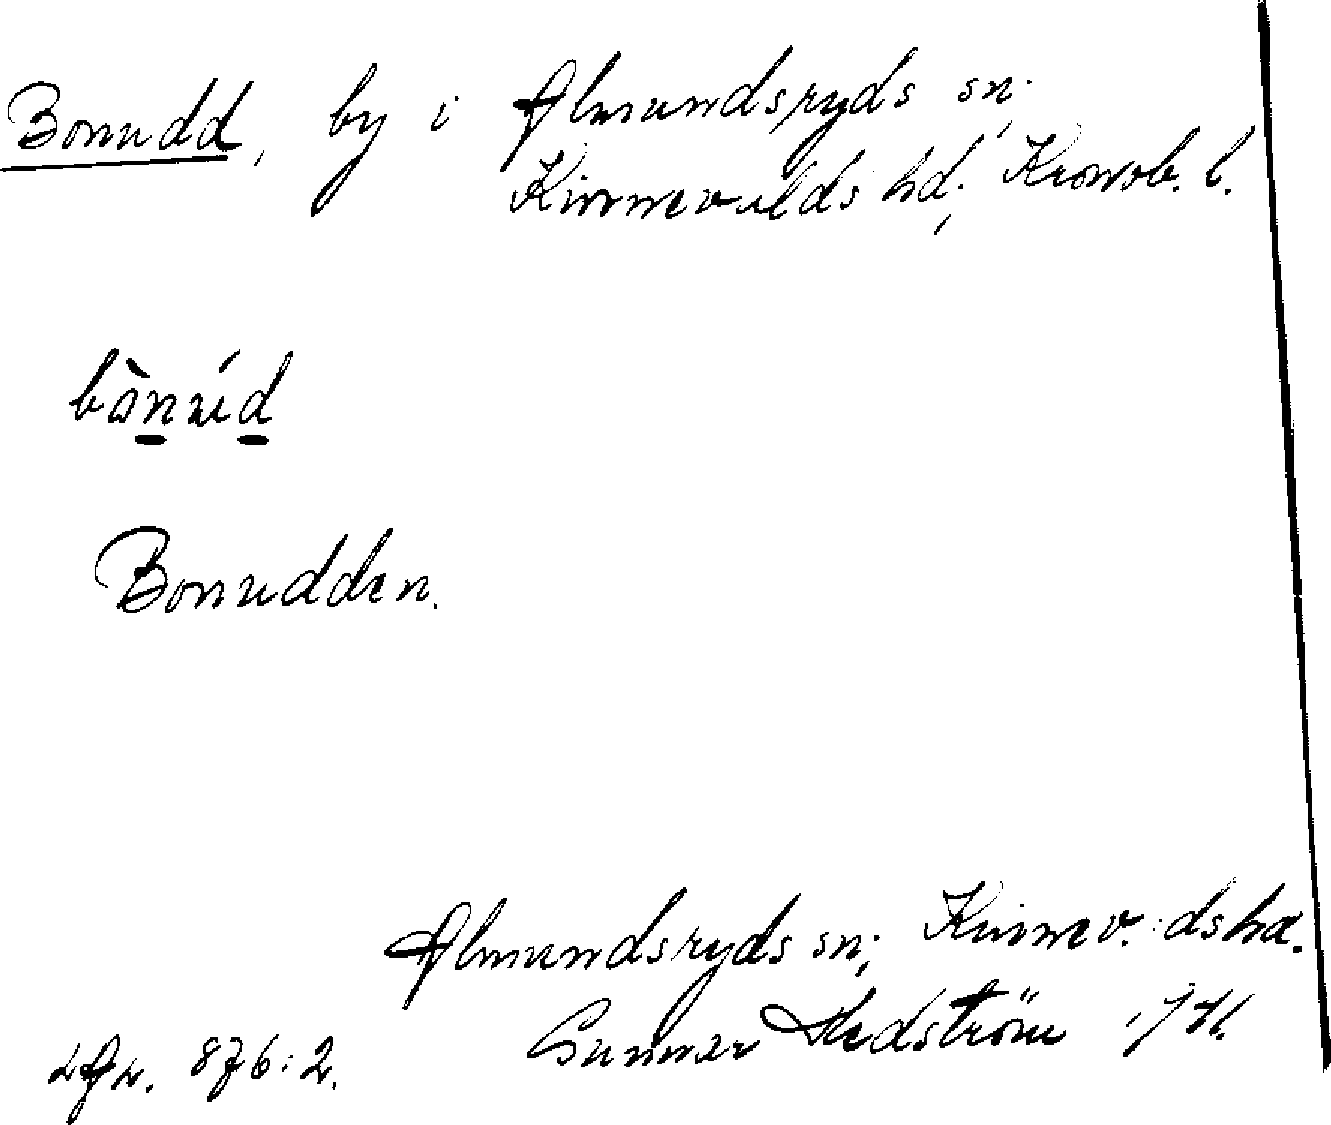 Bonudd, by i Almundsryds sn;
Kinnevalds hd; Kronob. l.
bònúd
Bonudden.
Almundsryds sn; Kinnev:dshd.
Gunnar Hedström
876:2.